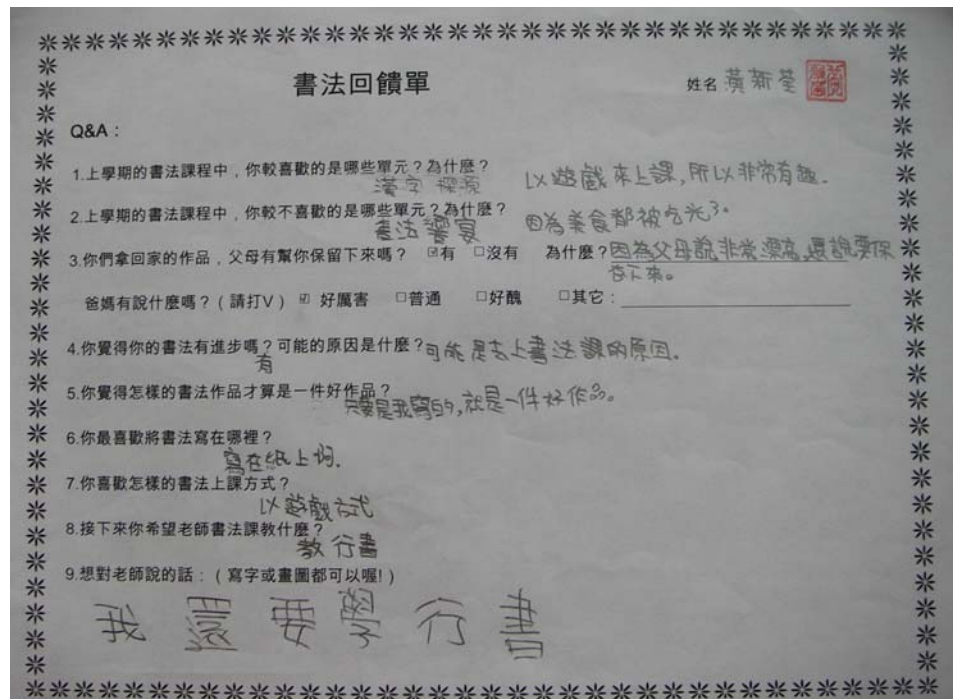 書法回饋單
姓名 黃新荃
Q&A：
1.上學期的書法課程中，你較喜歡的是哪些單元？為什麼？
漢字 探源 以遊戲來上課,所以非常有趣.
2.上學期的書法課程中，你較不喜歡的是哪些單元？為什麼？
書法饗宴 因為美食都被吃光了。
3.你們拿回家的作品，父母有幫你保留下來嗎？ ☑有 □沒有 為什麼？因為父母說非常漂亮,還說要保
存下來。
爸媽有說什麼嗎？(請打V) ☑ 好厲害 □普通 □好醜 □其它：
4.你覺得你的書法有進步嗎？可能的原因是什麼？可能是去上書法課的原因.
有
5.你覺得怎樣的書法作品才算是一件好作品？
只要是我寫的,就是一件好作品。
6.你最喜歡將書法寫在哪裡？
寫在紙上啊.
7.你喜歡怎樣的書法上課方式？
以遊戲方式
8.接下來你希望老師書法課教什麼？
教行書
9.想對老師說的話：(寫字或畫圖都可以喔!)
我還要學行書